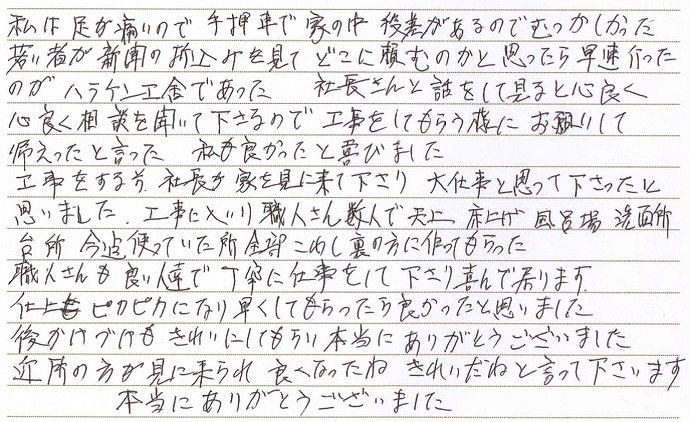 私は足が痛いので手押車で家の中段差があるのでむつかしかった
若い者が新聞の折込みを見てどこに頼むのかと思ったら早速行った
のがハラケン工舎であった 社長さんと話をして見ると心良く
心良く相談を聞いて下さるので工事をしてもらう様にお願りして
帰えったと言った 私も良かったと喜びました
工事をする前 社長が家を見に来て下さり 大仕事と思って下さったと
思いました. 工事に入り職人さん数人で天上 床上げ 風呂場 洗面所
台所 今迠使っていた所全部こわし裏の方に作ってもらった
職人さんも良い人達で丁寧に仕事をして下さり喜んで居ります.
仕上も ピカピカになり早くしてもらったら良かったと思いました
後かけづけも きれいにしてもらい本当にありがとうございました
近所の方が見に来られ 良くなったね きれいだねと言って下さいます
本当にありがとうございました